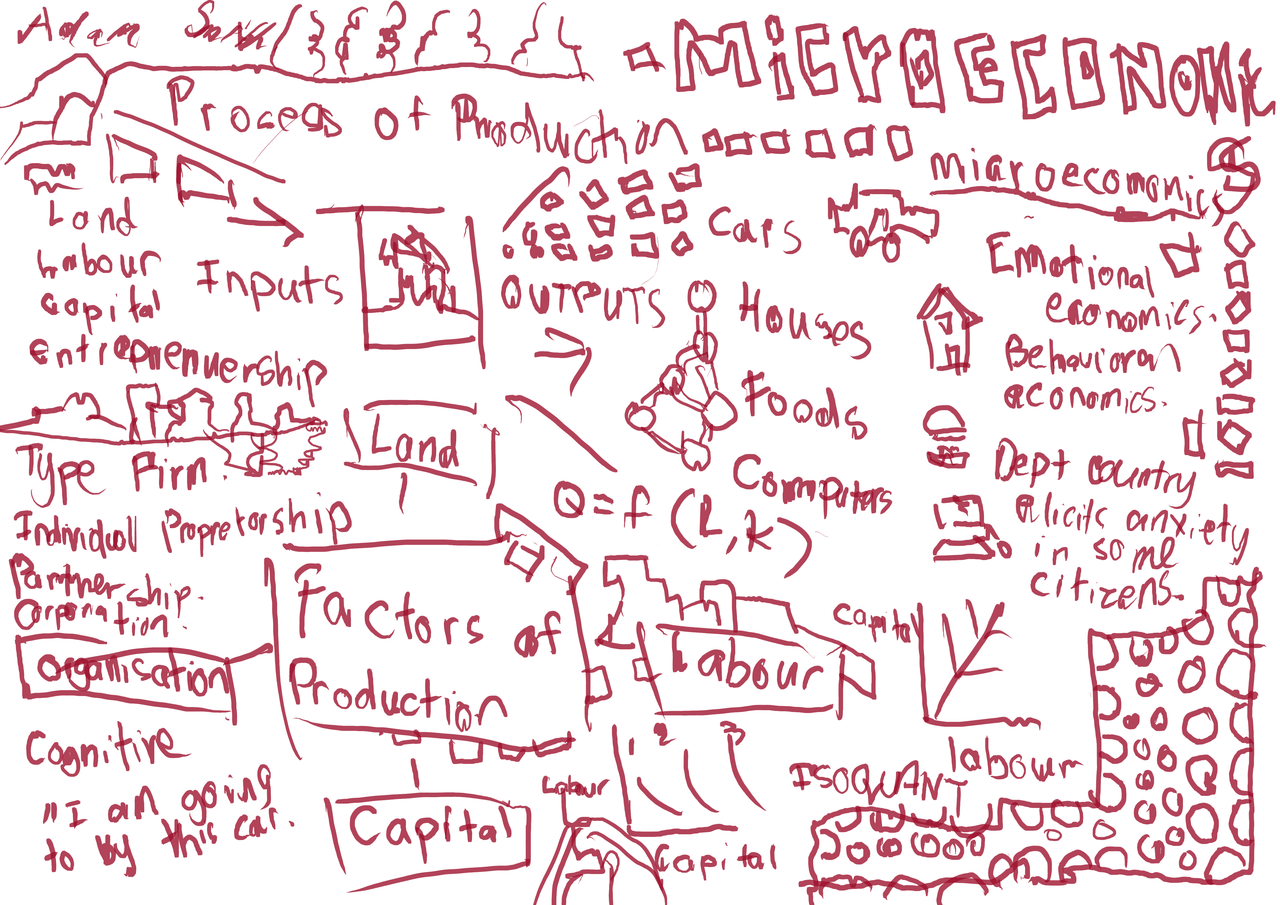 Adam Smith
MICROECONOMIC
Process of Production
miaroecomonics
Land
Labour
capital
entreprenuership
Inputs
OUTPUTS
cars
Houses
Foods
Computers
Emotional
economics.
Behavioran
aconomics.
Dept country
alicits anxiety
in some
citizens.
Type Firm.
Individual Propretorship
Partnership.
Corporation.
organisation
Cognitive
"I am going
to by this car.
Land
Q = f (L, K)
Factors of
Production
Labour
Capital
capital
labour
2 3
ISOQUANT
Labour
Capital
$